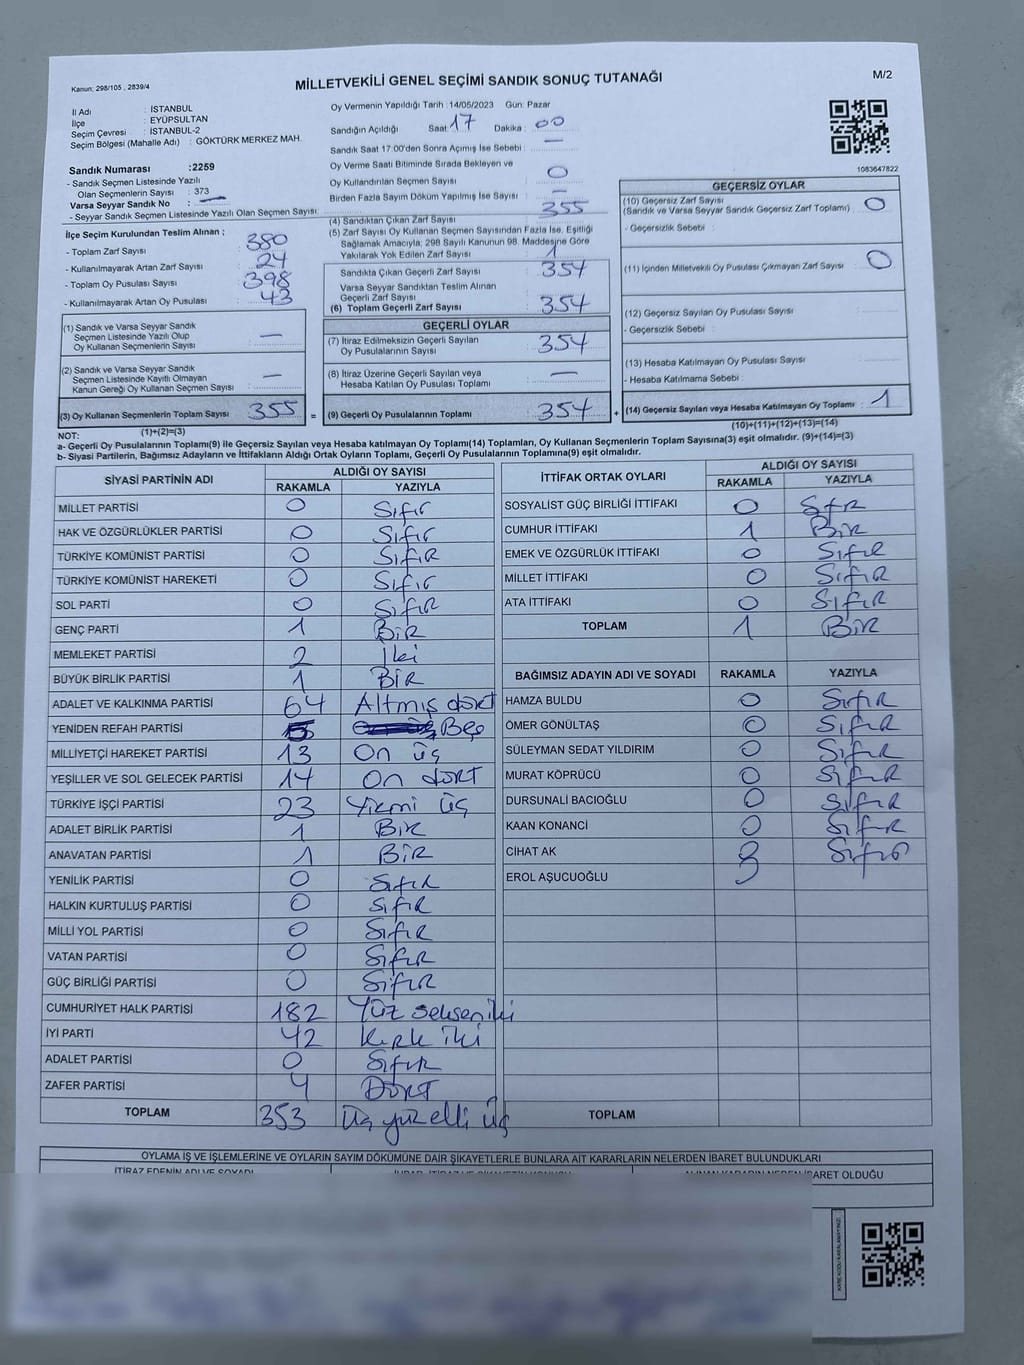 Kanun: 298/105 , 2839/4
MİLLETVEKİLİ GENEL SEÇİMİ SANDIK SONUÇ TUTANAĞI
M/2
İl Adı : İSTANBUL
İlçe : EYÜPSULTAN
Seçim Çevresi : İSTANBUL-2
Seçim Bölgesi (Mahalle Adı) : GÖKTÜRK MERKEZ MAH.
Sandık Numarası :2259
- Sandık Seçmen Listesinde Yazılı
Olan Seçmenlerin Sayısı : 373
Varsa Seyyar Sandık No : —
- Seyyar Sandık Seçmen Listesinde Yazılı Olan Seçmen Sayısı:
İlçe Seçim Kurulundan Teslim Alınan ;
- Toplam Zarf Sayısı : 380
- Kullanılmayarak Artan Zarf Sayısı : 24
- Toplam Oy Pusulası Sayısı : 398
- Kullanılmayarak Artan Oy Pusulası : 43
(1) Sandık ve Varsa Seyyar Sandık
Seçmen Listesinde Yazılı Olup
Oy Kullanan Seçmenlerin Sayısı : —
(2) Sandık ve Varsa Seyyar Sandık
Seçmen Listesinde Kayıtlı Olmayan
Kanun Gereği Oy Kullanan Seçmen Sayısı : —
(3) Oy Kullanan Seçmenlerin Toplam Sayısı : 355 =
(1)+(2)=(3)
Oy Vermenin Yapıldığı Tarih :14/05/2023 Gün: Pazar
Sandığın Açıldığı Saat: 17 Dakika : 00
Sandık Saat 17:00'den Sonra Açımış İse Sebebi : —
Oy Verme Saati Bitiminde Sırada Bekleyen ve
Oy Kullandırılan Seçmen Sayısı : 0
Birden Fazla Sayım Döküm Yapılmış İse Sayısı : —
(4) Sandıktan Çıkan Zarf Sayısı : 355
(5) Zarf Sayısı Oy Kullanan Seçmen Sayısından Fazla İse, Eşitliği
Sağlamak Amacıyla, 298 Sayılı Kanunun 98. Maddesine Göre
Yakılarak Yok Edilen Zarf Sayısı : 1
Sandıkta Çıkan Geçerli Zarf Sayısı : 354
Varsa Seyyar Sandıktan Teslim Alınan
Geçerli Zarf Sayısı :
(6) Toplam Geçerli Zarf Sayısı : 354
GEÇERLİ OYLAR
(7) İtiraz Edilmeksizin Geçerli Sayılan
Oy Pusulalarının Sayısı : 354
(8) İtiraz Üzerine Geçerli Sayılan veya
Hesaba Katılan Oy Pusulası Toplamı : —
(9) Geçerli Oy Pusulalarının Toplamı : 354 +
1083647822
GEÇERSİZ OYLAR
(10) Geçersiz Zarf Sayısı : 0
(Sandık ve Varsa Seyyar Sandık Geçersiz Zarf Toplamı)
- Geçersizlik Sebebi :
(11) İçinden Milletvekili Oy Pusulası Çıkmayan Zarf Sayısı : 0
(12) Geçersiz Sayılan Oy Pusulası Sayısı :
- Geçersizlik Sebebi :
(13) Hesaba Katılmayan Oy Pusulası Sayısı :
- Hesaba Katılmama Sebebi :
(14) Geçersiz Sayılan veya Hesaba Katılmayan Oy Toplamı : 1
(10)+(11)+(12)+(13)=(14)
NOT:
a- Geçerli Oy Pusulalarının Toplamı(9) ile Geçersiz Sayılan veya Hesaba katılmayan Oy Toplamı(14) Toplamları, Oy Kullanan Seçmenlerin Toplam Sayısına(3) eşit olmalıdır. (9)+(14)=(3)
b- Siyasi Partilerin, Bağımsız Adayların ve İttifakların Aldığı Ortak Oyların Toplamı, Geçerli Oy Pusulalarının Toplamına(9) eşit olmalıdır.
SİYASİ PARTİNİN ADI ALDIĞI OY SAYISI
RAKAMLA YAZIYLA
MİLLET PARTİSİ 0 Sıfır
HAK VE ÖZGÜRLÜKLER PARTİSİ 0 Sıfır
TÜRKİYE KOMÜNİST PARTİSİ 0 SıfıR
TÜRKİYE KOMÜNİST HAREKETİ 0 Sıfır
SOL PARTİ 0 SıfıR
GENÇ PARTİ 1 BiR
MEMLEKET PARTİSİ 2 İki
BÜYÜK BİRLİK PARTİSİ 1 BiR
ADALET VE KALKINMA PARTİSİ 64 Altmış dört
YENİDEN REFAH PARTİSİ 5 Beş
MİLLİYETÇİ HAREKET PARTİSİ 13 On üç
YEŞİLLER VE SOL GELECEK PARTİSİ 14 On dört
TÜRKİYE İŞÇİ PARTİSİ 23 Yirmi üç
ADALET BİRLİK PARTİSİ 1 BiR
ANAVATAN PARTİSİ 1 BiR
YENİLİK PARTİSİ 0 SıfıR
HALKIN KURTULUŞ PARTİSİ 0 SıfıR
MİLLİ YOL PARTİSİ 0 SıfıR
VATAN PARTİSİ 0 SıfıR
GÜÇ BİRLİĞİ PARTİSİ 0 SıfıR
CUMHURİYET HALK PARTİSİ 182 Yüz seksen iki
İYİ PARTİ 42 Kırk iki
ADALET PARTİSİ 0 SıfıR
ZAFER PARTİSİ 4 DöRt
TOPLAM 353 Üç yüz elli üç
İTTİFAK ORTAK OYLARI ALDIĞI OY SAYISI
RAKAMLA YAZIYLA
SOSYALİST GÜÇ BİRLİĞİ İTTİFAKI 0 SıfR
CUMHUR İTTİFAKI 1 BiR
EMEK VE ÖZGÜRLÜK İTTİFAKI 0 SıfıR
MİLLET İTTİFAKI 0 SıfıR
ATA İTTİFAKI 0 SıfıR
TOPLAM 1 BiR
BAĞIMSIZ ADAYIN ADI VE SOYADI RAKAMLA YAZIYLA
HAMZA BULDU 0 SıfıR
ÖMER GÖNÜLTAŞ 0 SıfıR
SÜLEYMAN SEDAT YILDIRIM 0 SıfıR
MURAT KÖPRÜCÜ 0 SıfıR
DURSUNALİ BACIOĞLU 0 SıfıR
KAAN KONANCİ 0 SıfıR
CİHAT AK Sıfır
EROL AŞUCUOĞLU
TOPLAM
OYLAMA İŞ VE İŞLEMLERİNE VE OYLARIN SAYIM DÖKÜMÜNE DAİR ŞİKAYETLERLE BUNLARA AİT KARARLARIN NELERDEN İBARET BULUNDUKLARI
İTİRAZ EDENİN ADI VE SOYADI
İBARET OLDUĞU